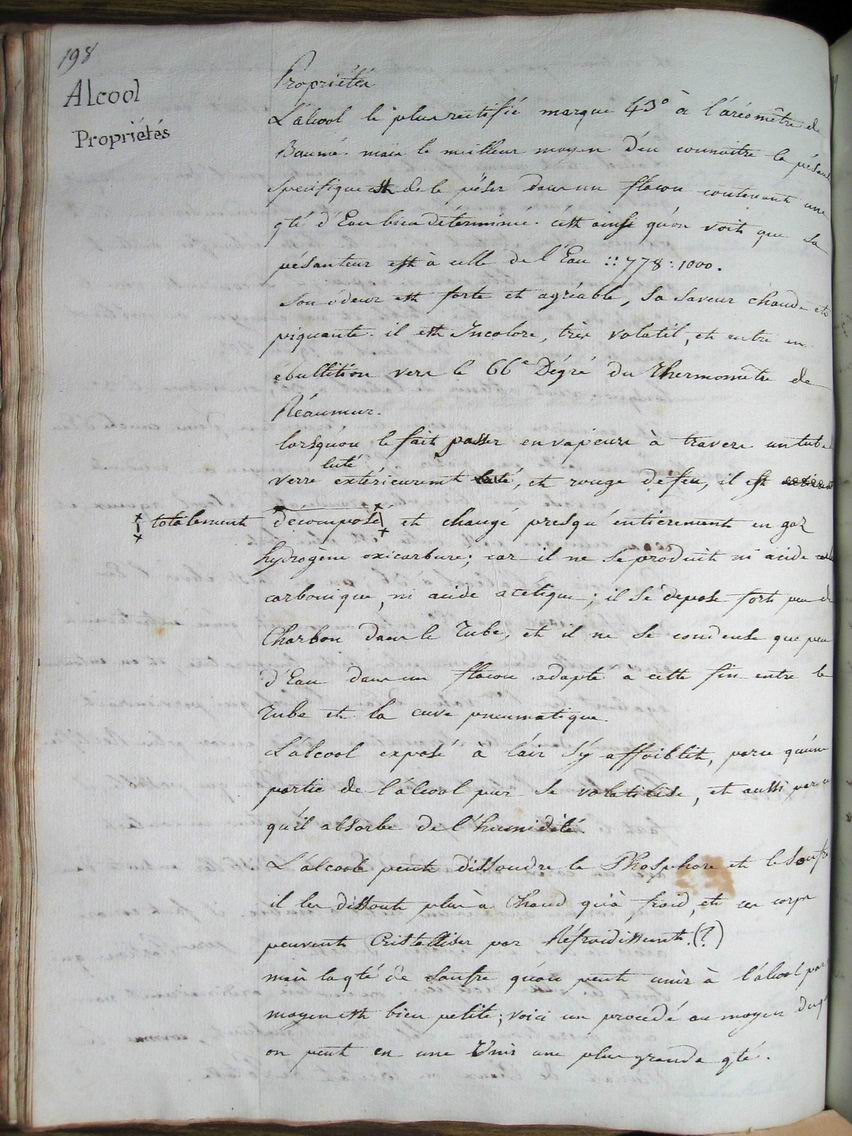 198
Alcool
Propriétés
Propriétés
L'alcool le plus rectifié marque 43° à l'aréomètre de
Baumé. mais le meilleur moyen d'en connoitre la pésant
specifique est de la péser dans un flacon contenant une
qté d'Eau bien déterminé. c'est ainsi qu'on voit que sa
pésanteur est à celle de l'Eau :: 778 : 1000.
son odeur est forte et agréable, sa saveur chaude et
piquante. il est Incolore, très volatil, et entre en
ebullition vers le 66e Dégré du Thermomètre de
Réaumur.
lorsqu'on le fait passer en vapeurs à travers un tube
verre extérieuremt luté, et rouge de feu, il est
totalement décomposé et changé presqu'entièrement en gaz
hydrogène oxicarburé; car il ne se produit ni acide
carbonique, ni acide acetique; il se dépose fort peu de
Charbon dans le Tube, et il ne se condense que peu
d'Eau dans un flacon adapté a cette fin entre le
Tube et la cuve pneumatique.
L'alcool exposé à l'air s'y affoiblit, parce qu'une
partie de l'alcool pur se volatilise, et aussi parce
qu'il absorbe de l'humidité
L'alcool peut dissoudre le Phosphore et le Soufre
il les dissout plus à Chaud qu'à froid, et ces corps
peuvent Cristalliser par Réfroidissemt. (?)
mais la qté de soufre qu'on peut unir à l'alcool par
moyen est bien petite; voici un procédé au moyen duq
on peut en une Unir une plus grande qté.